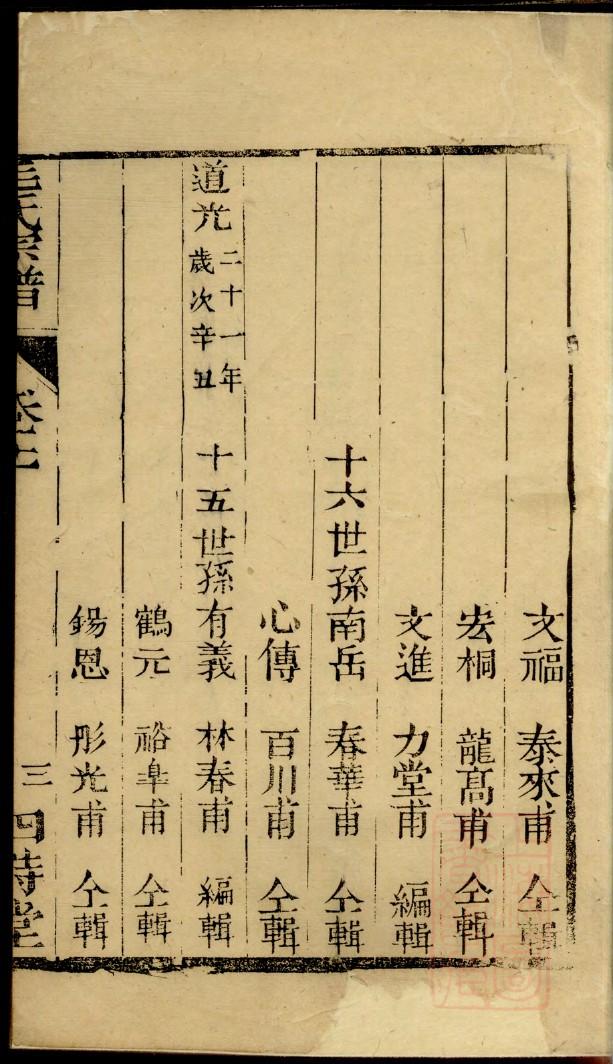 文福 泰來甫 仝輯
宏桐 龍髙甫 仝輯
文進 力堂甫 編輯
十六世孫南岳 春華甫 仝輯
心傳 百川甫 仝輯
道光二十一年歲次辛丑 十五世孫有義 林春甫 編輯
鶴元 裕臯甫 仝輯
錫恩 彤光甫 仝輯
毛氏宗譜 卷十 三 四詩堂